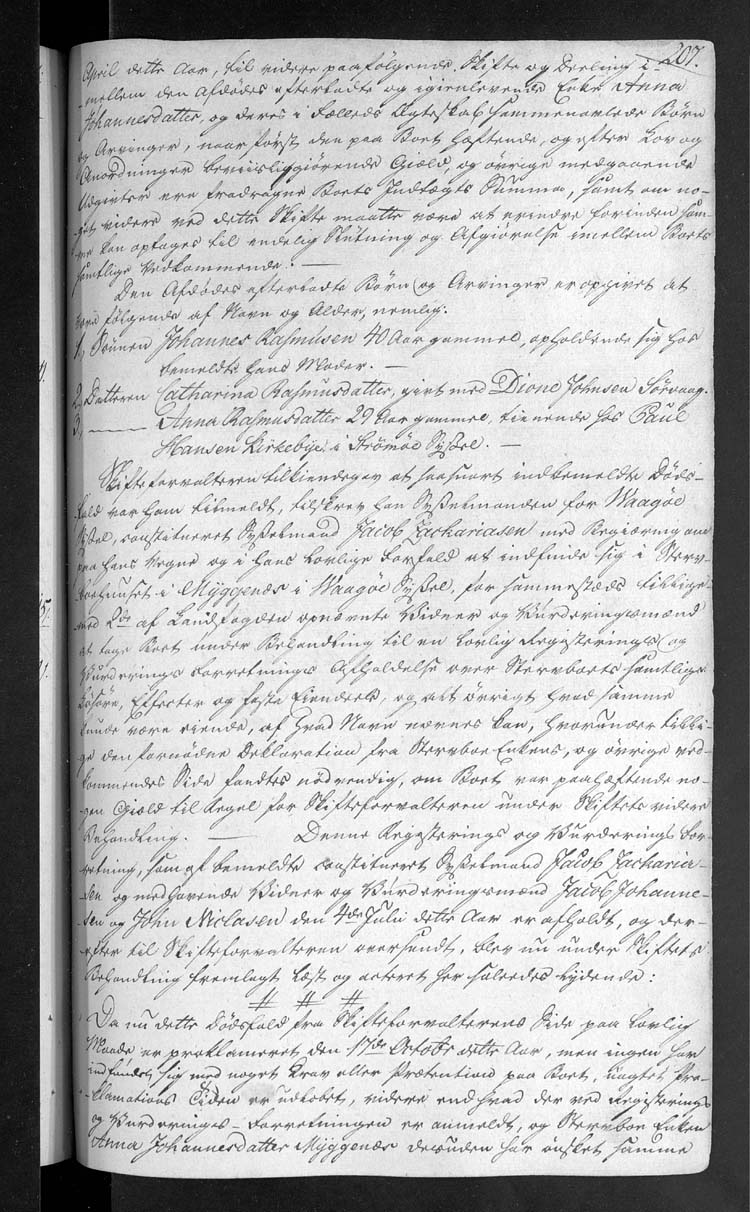 207.
April dette Aar, til videre paafølgende Skifte og Deeling i-
mellem den Afdødes efterladte og igienlevende Enke Anna
Johannesdatter, og deres i fælleds Ægteskab sammenavlede Børn
og Arvinger, naar først den paa Boet haftende, og efter Lov og
Anordninger beviisliggiørende Giæld, og øvrige medgaaende
Udgivter ere fradragne Boets Indtægts Summa, samt om no-
get videre ved dette Skifte maatte være at erindre forinden sam-
me kan optages til endelig Slutning og Afgiørelse imellem Boets
samtlige Vedkommende. —
Den Afdødes efterladte Børn og Arvinger er opgivet at
være følgende af Navn og Alder, nemlig:
1, Sønnen Johannes Rasmusen 40 Aar gammel, opholdende sig hos
bemeldte hans Moder. —
2, Datteren Catharina Rasmusdatter, givt med Dione Johnsen Sørvaag.
3, —— Anna Rasmusdatter 29 Aar gammel, tienende hos Paul
Hansen Kirkebye i Strømøe Syssel. —
Skifteforvalteren tilkiendegav at saasnart indbemeldte Døds-
fald var ham tilmeldt, tilskrev han Sysselmanden for Waagøe
Syssel, constitueret Sysselmand Jacob Zachariasen med Reqvisition om
paa hans Vegne og i hans lovlige Forfald at indfinde sig i Sterv-
boehuuset i Myggenæs i Waagøe Syssel, for sammestæds tillige
med 2de af Landfogden opnævnte Vidner og Vurderingsmænd
at tage Boet under Behandling til en lovlig Registerings og
Vurderings Forretnings Afholdelse over Stervboets samtlige
Løsøre, Effecter og faste Eiendeele, og alt øvrigt hvad samme
kunde være eiende, af hvad Navn nævnes kan, hvorunder tilli-
ge den fornødne Deklaration fra Stervboe Enkens, og øvrige ved-
kommendes Side fandtes nødvendig, om Boet var paahæftende no-
gen Giæld til Regel for Skifteforvalteren under Skiftets videre
Behandling. — Denne Registerings og Vurderings For-
retning, som af bemeldte constitueret Sysselmand Jacob Zacharia-
sen og medhavende Vidner og Vurderingsmænd Jacob Johanne-
sen og John Niclasen den 4de Julii dette Aar er afholdt, og der-
efter til Skifteforvalteren oversendt, blev nu under Skiftets
Behandling fremlagt læst og acteret her saaledes lydende:
# # #
Da nu dette Dødsfald fra Skifteforvalterens Side paa lovlig
Maade er proklameret den 17de Octobr dette Aar, men ingen har
indfundet sig med noget Krav eller Prætention paa Boet, uagtet Pro-
klamations Tiden er udløbet, videre end hvad der ved Registerings
og Vurderings-Forretningen er anmeldt, og Stervboe Enken
Anna Johannesdatter Myggenæs desuden har ønsket samme